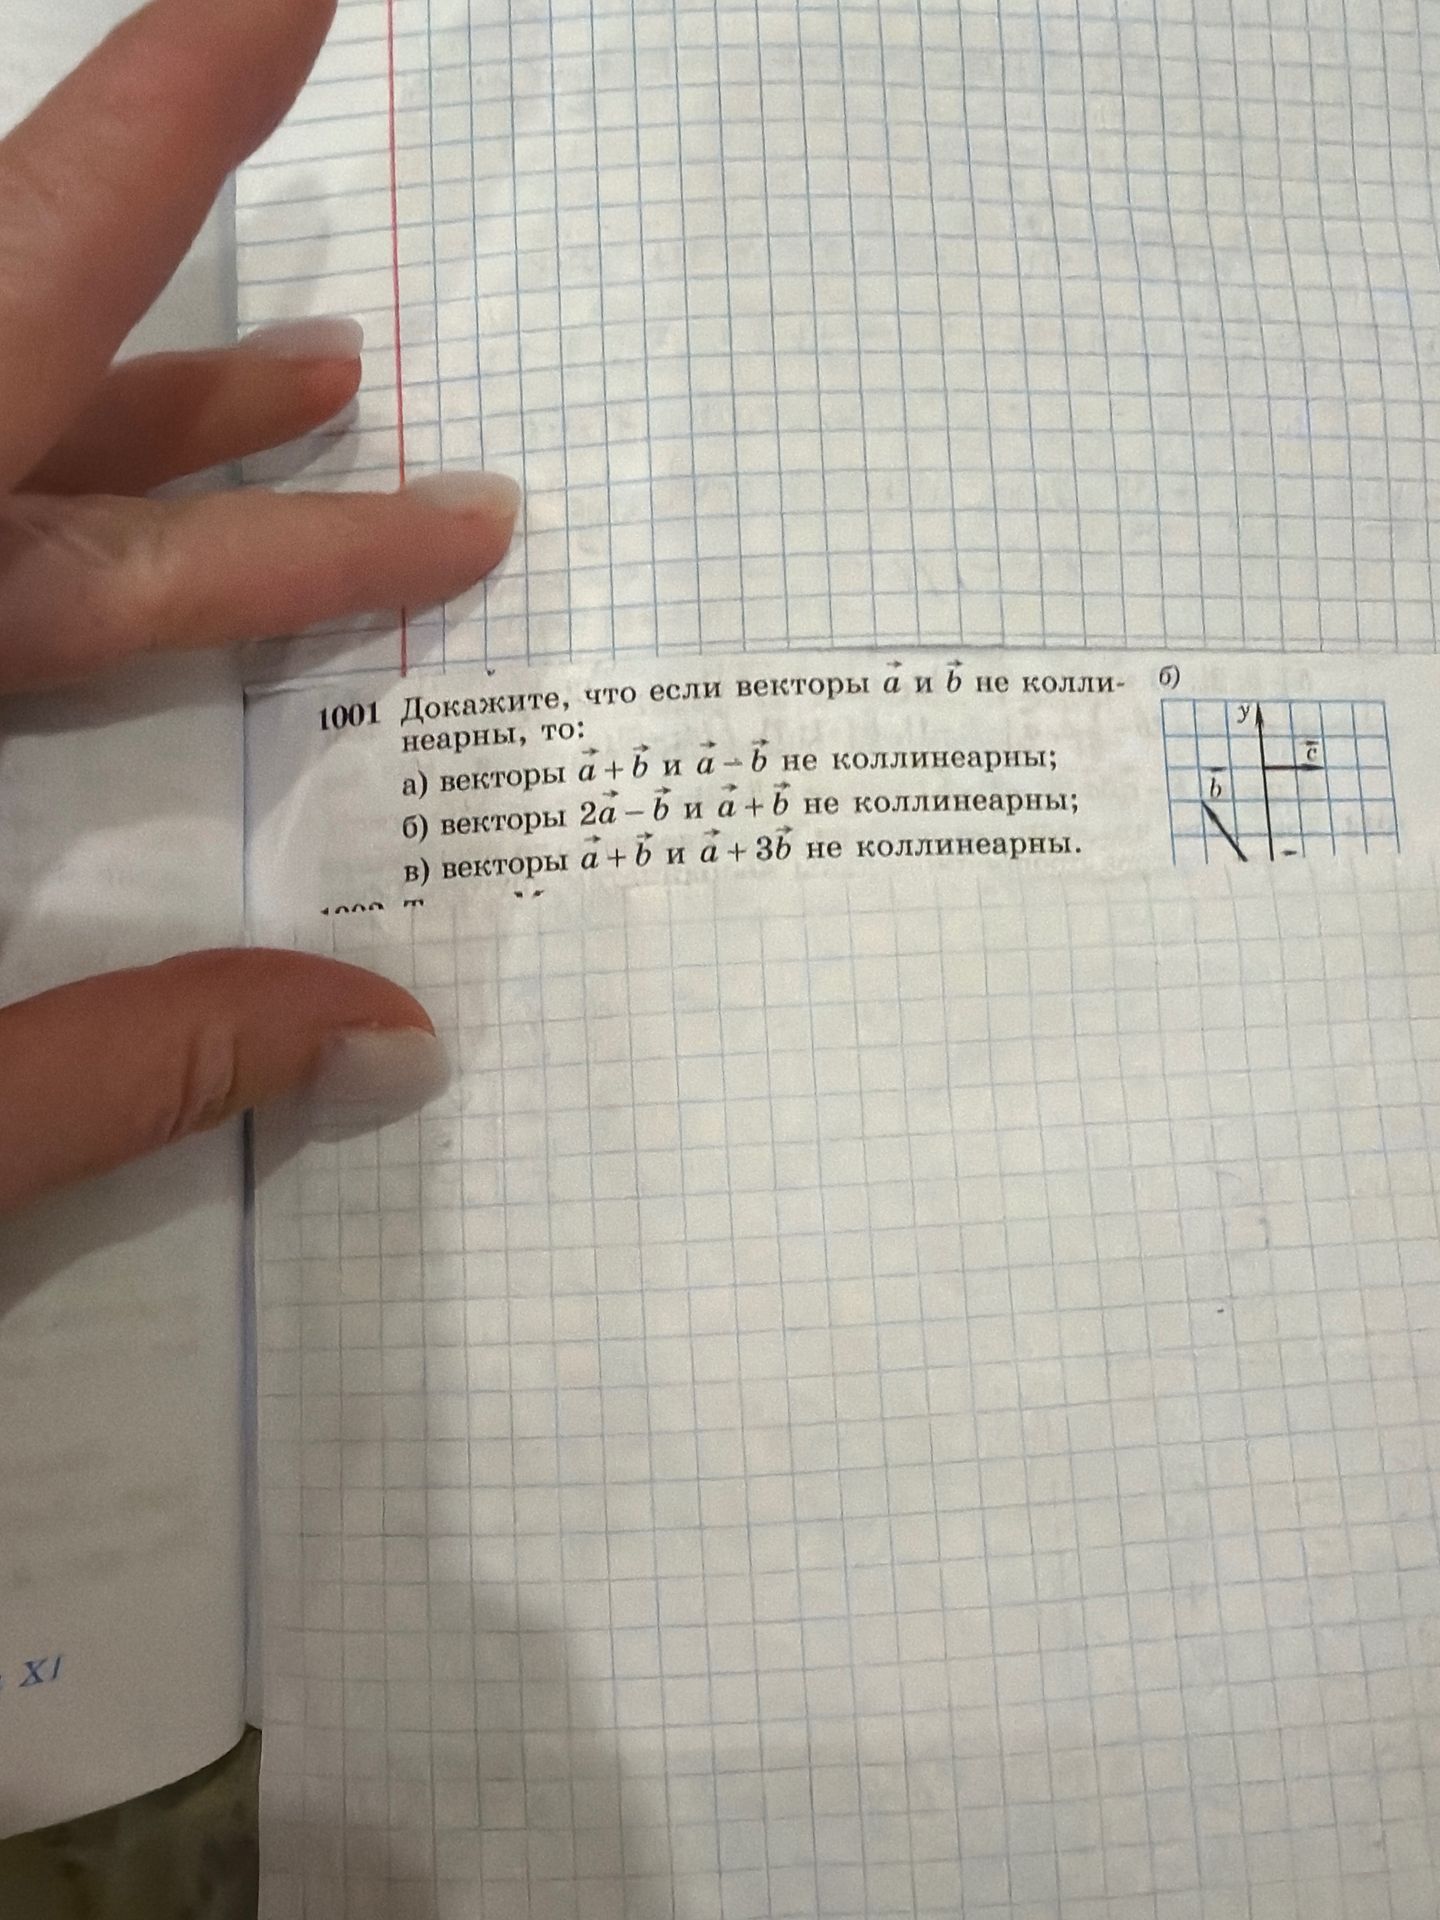 1001 Докажите, что если векторы a⃗ и b⃗ не колли-
неарны, то:
а) векторы a⃗ + b⃗ и a⃗ − b⃗ не коллинеарны;
б) векторы 2a⃗ − b⃗ и a⃗ + b⃗ не коллинеарны;
в) векторы a⃗ + b⃗ и a⃗ + 3b⃗ не коллинеарны.
б)
y
c⃗
b
XI